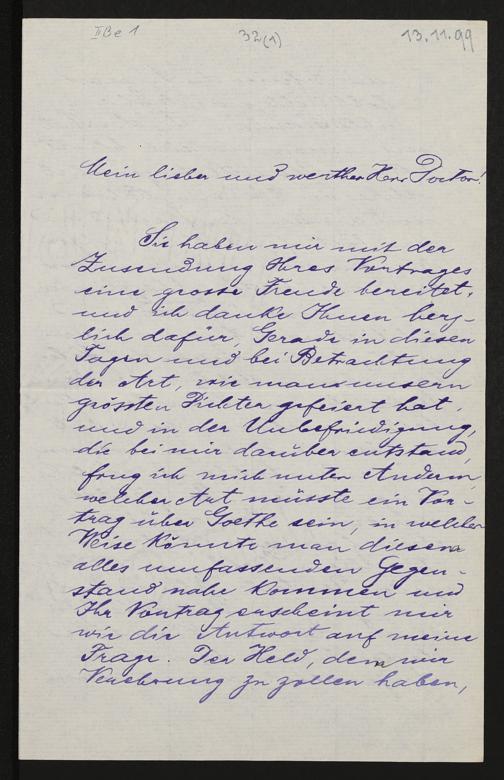 II Be 1 32(1) 13.11.99
Mein lieber und werther Herr Doctor!
Sie haben mir mit der
Zusendung Ihres Vortrages
eine grosse Freude bereitet,
und ich danke Ihnen herz-
lich dafür, Gerade in diesen
Tagen und bei Betrachtung
der Art, wie man unsern
grössten Dichter gefeiert hat,
und in der Unbefriedigung,
die bei mir darüber entstand,
frug ich mich unter Anderm,
welcher Art müsste ein Vor-
trag über Goethe sein, in welcher
Weise könnte man diesem
alles umfassenden Gegen-
stand nahe kommen und
Ihr Vortrag erscheint mir
wie die Antwort auf meine
Frage. Der Held, dem wir
Verehrung zu zollen haben,